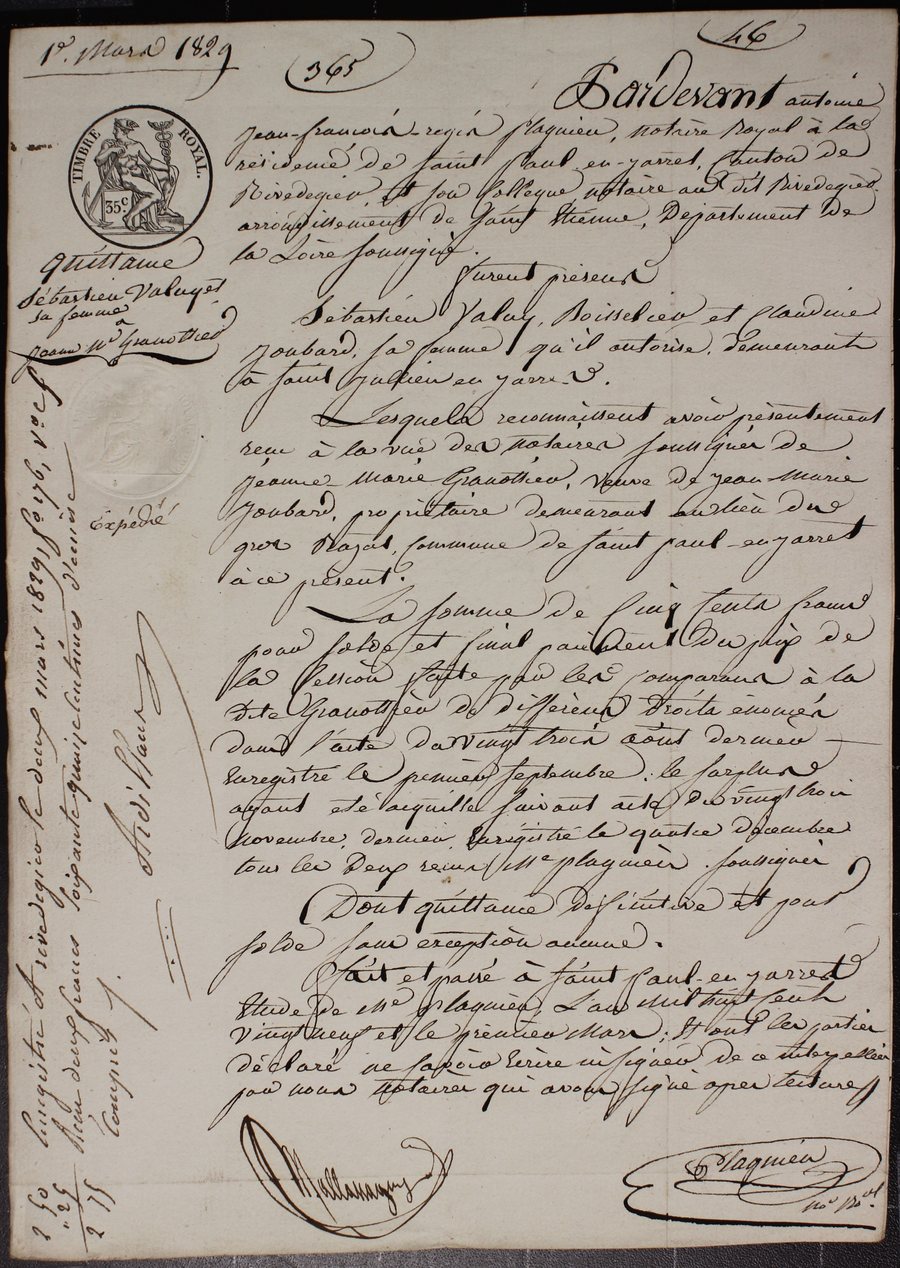 1er. Mars 1829
365
46
TIMBRE ROYAL.
35c
Quittance
Sébastien Valuy et
sa femme
à
Jeanne Mie Granottier
Expédié
Pardevant antoine
Jean-françois-regis plagnieu, notaire Royal à la
résidence de Saint Paul-en-jarret, Canton de
Rivedegier, et son Collegue notaire au dit Rivedegier
arrondissement de Saint Etienne, Département de
la Loire soussigné.
Furent présens
Sébastien Valuy, Boisselier et Claudine
Joubard, sa femme qu'il autorise, demeurants
à Saint Jullien en jarret.
Lesquels reconnaissent avoir présentement
recu à la vue des notaires soussignés de
Jeanne Marie Granottier, veuve de Jean-Marie
Joubard, propriétaire demeurant au lieu du
gros Razat, Commune de Saint paul-en-jarret
à ce présent.
La somme de Cinq Cents francs
pour solde et final paiement du prix de
la Cession faite par les Comparans à la
dite Granottier de différens droits énoncés
dans l'acte du vingt trois août dernier
Enregistré le premier septembre. le surplus
ayant été aquitté suivant acte du vingt trois
novembre, dernier, Enregistré le quatre décembre
tous les deux recus Me plagnieu, soussigné
Dont quittance définitive et pour
solde sans exception aucune.
fait et passé à Saint Paul-en-jarret
Etude de Me plagnieu, L'an mil huit Cents
vingt neuf et le premier Mars; Et ont les parties
déclaré ne savoir Ecrire ni signer de ce interpellées
par nous notaires qui avons signé apres lecture
Plagnieu
nre Roal.
Enregistré à rivedegier le deux mars 1829, fo 176, Vo C
Reçu deux francs soixante quinze centimes dixième
Compris
2 50
" 25
2 75